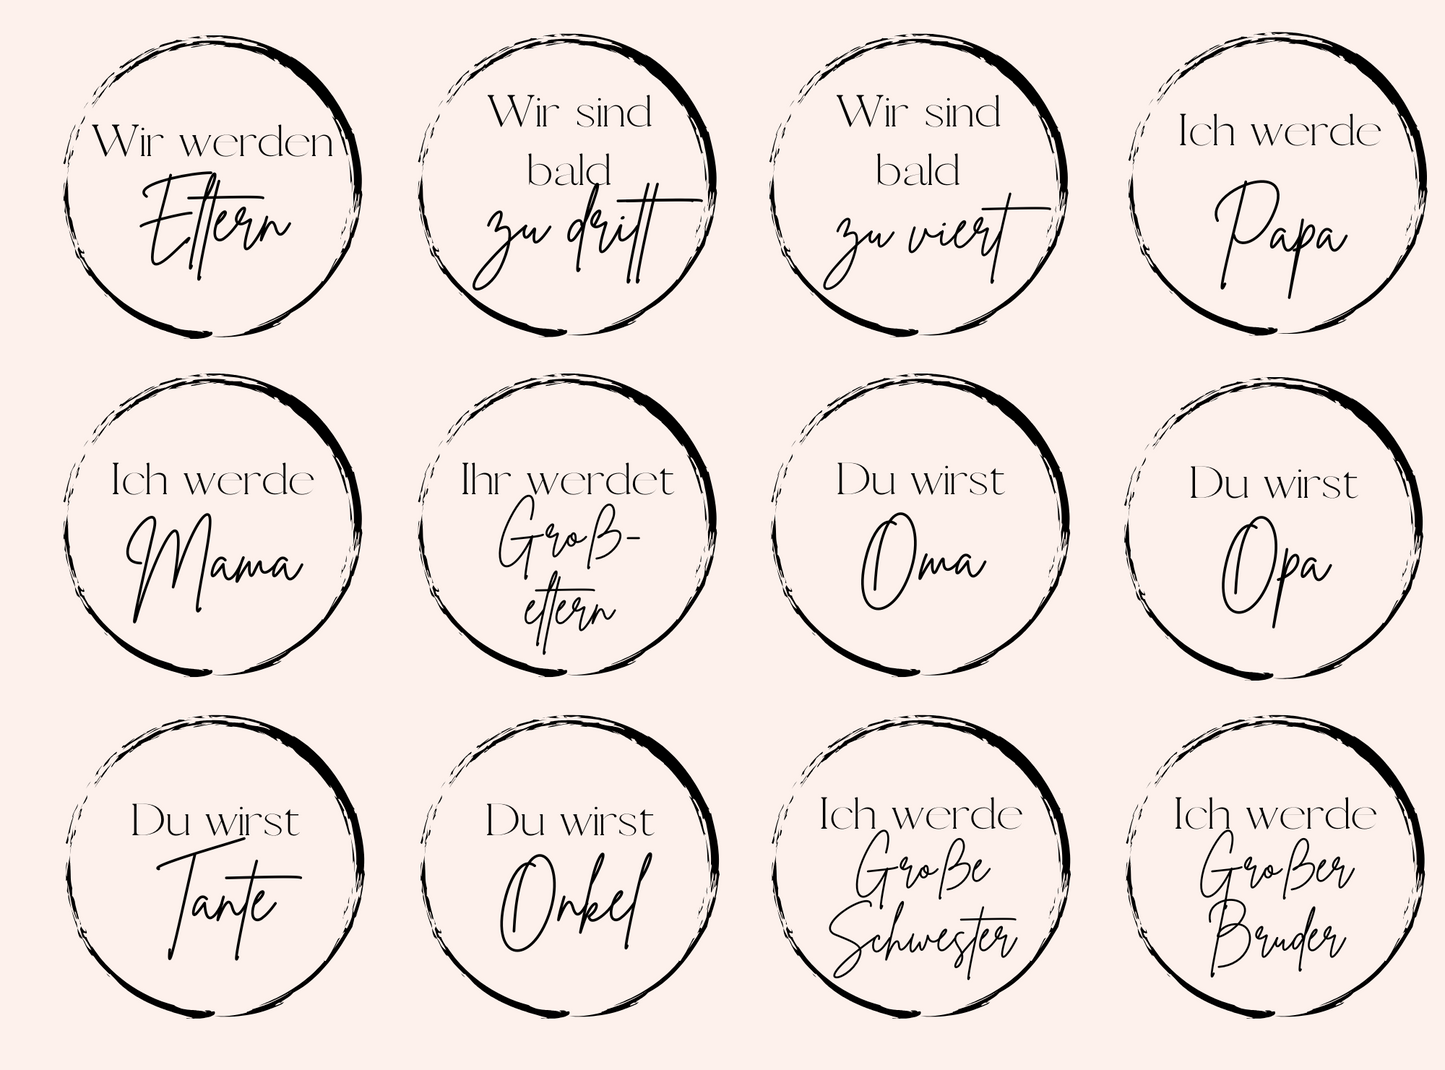 Wir werden
Eltern
Wir sind
bald
zu dritt
Wir sind
bald
zu viert
Ich werde
Papa
Ich werde
Mama
Ihr werdet
Groß-
eltern
Du wirst
Oma
Du wirst
Opa
Du wirst
Tante
Du wirst
Onkel
Ich werde
Große
Schwester
Ich werde
Großer
Bruder